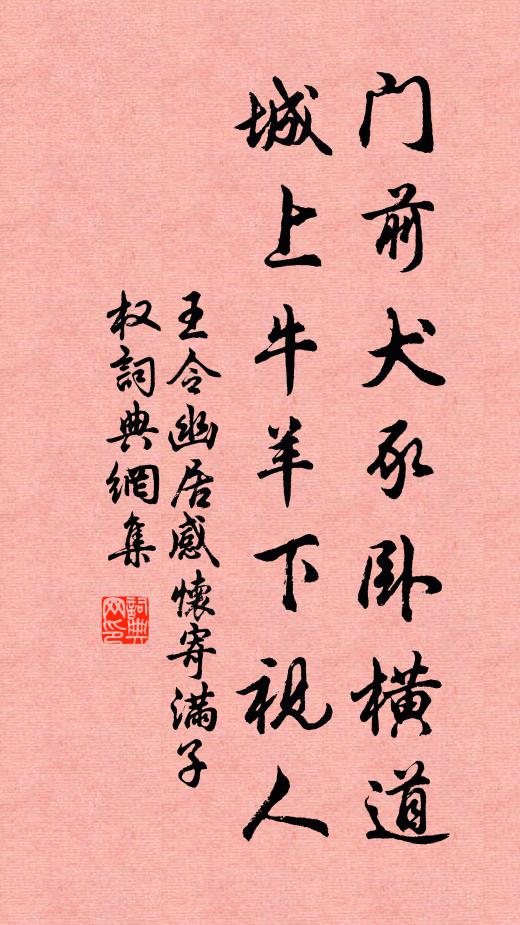 门前犬豕卧横道
城上牛羊下视人
王令幽居感懷寄滿子
权詞典網集
詞典网印